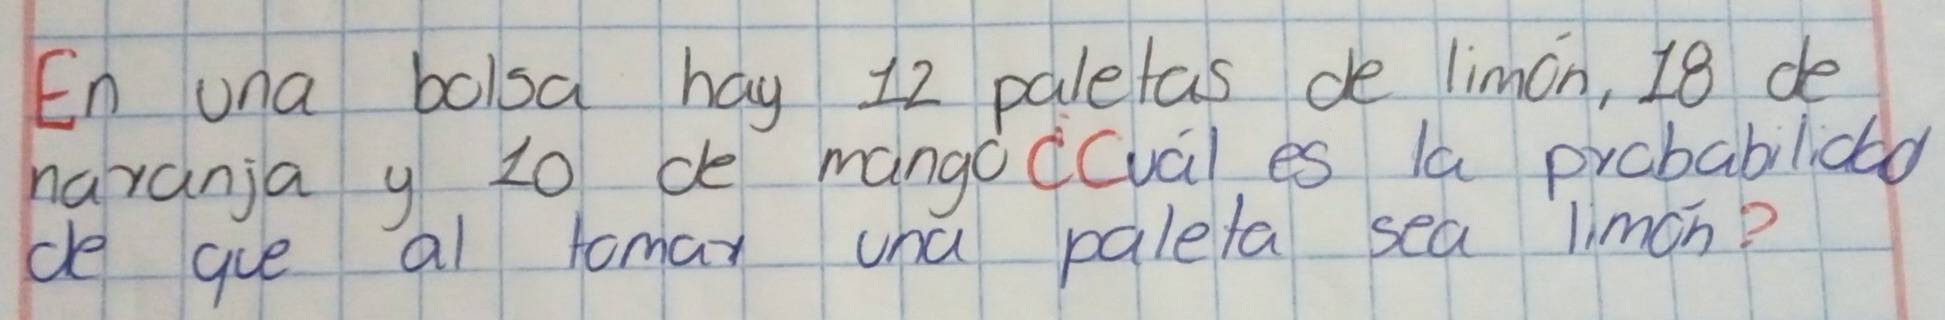 En una bolsa hay 12 paletas de limón, 18 de
naranja y 10 de mango ¿Cuál es la probabilidad
de que al tomar una paleta sea limón?